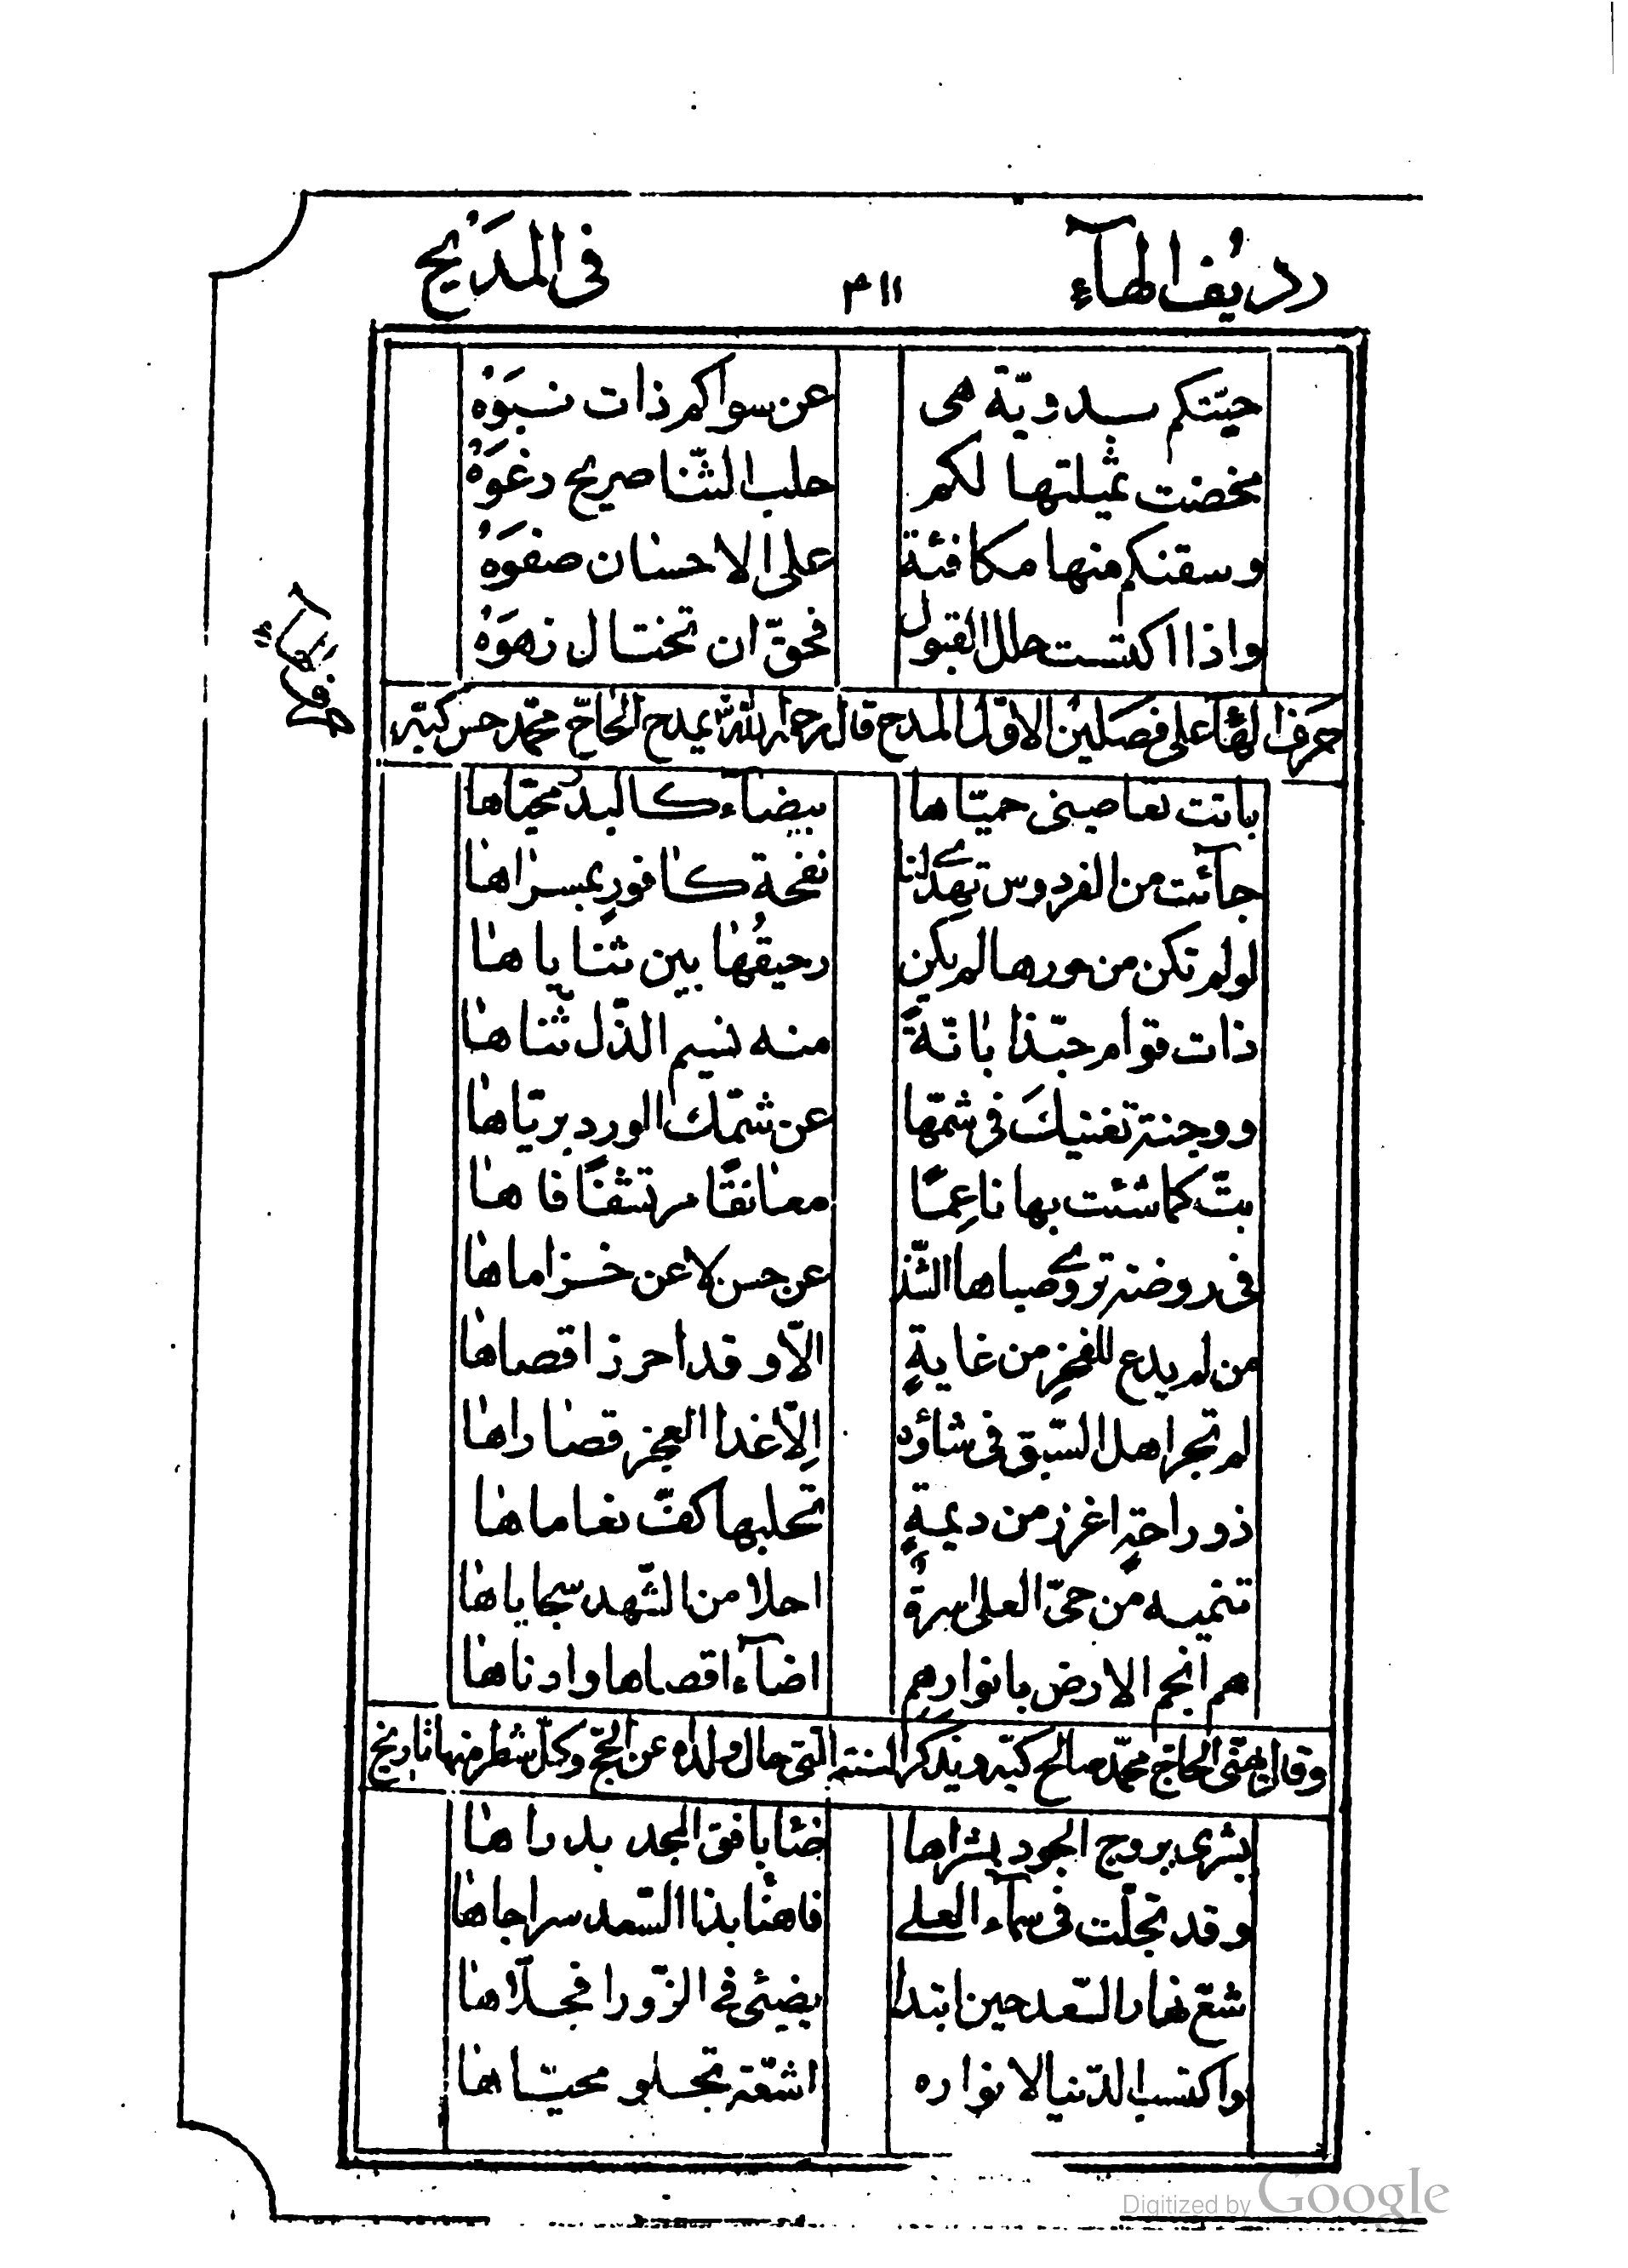 رديف الهآء ٣١١ فى المديح
حيّتكم بدويّة هى عن سواكم ذات نبوه
مخضت ثميلتها لكم حلب الثّنا صريح رغوه
وسقتكم منها مكافئة على الاحسان صفوه
واذا اكتست حلل القبول فحقّ ان تختال زهوه
حرف الهآء على فصلين الاوّل المدح قال رحمه الله يمدح الحاجّ محمّد حسن كبّه
باتت تعاطينى حميّاها بيضاء كالبدر محيّاها
جآئت من الفردوس تهدى لنا نفحة كافور بمسراها
لو لم تكن من حورها لم يكن رحيقُها بين ثناياها
ذات قوام حبّذا بانةً منه نسيم الدّل ثناها
ووجنة تغنيكَ فى شمّها عن شمّك الورد بريّاها
بتّ كما شئت بها ناعِمًا معانقًا مرتشفًا فاها
فى روضة تروى صباها الشّذا عن حسن لا عن خزاماها
من لم يدع للفخرِ من غايةٍ الاّ وقد احرز اقصاها
لم تجر اهل السّبق فى شاؤه اِلاّ غدا العجز قصاراها
ذو راحةٍ اغزر من ديمةٍ تحلبها كفّ نعاماها
تنميه من حىّ العلى اسرةٌ احلا من الشّهد سجاياها
هم انجم الارض بانوارِهِم اضآء اقصاها وادناها
وقال يهنّى الحاجّ محمّد صالح كبّه ويذكر السنة التى حال ولداه عن الحجّ وكلّ شطر منها تاريخ
بشرى بروج الجود بشراها ضئا بافق المجد بدراها
وقد تجلّت فى سمآء العلى فاهنا بذا السّعد سراجاها
شعّ نهار السّعد حين ابتدا يضيئى فى الزّورا فجلاّها
واكتسب الدّنيا لانواره اشعّة تجلو محيّاها